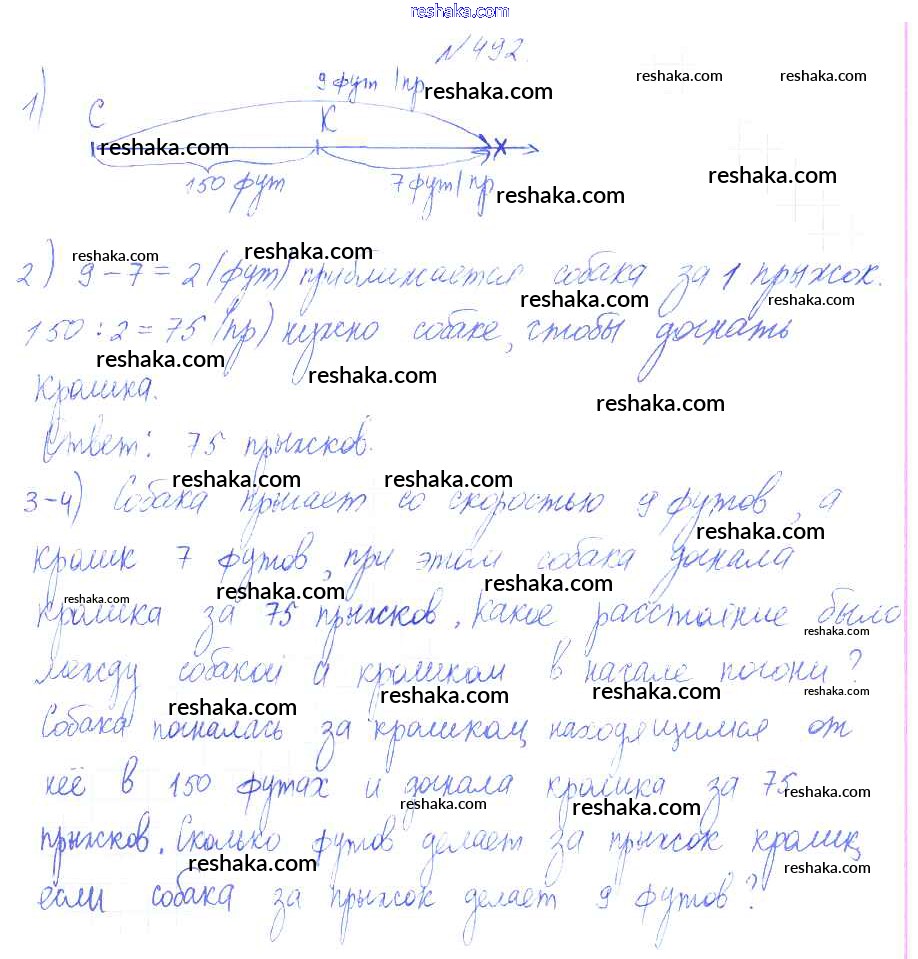 reshaka.com
№492.
reshaka.com reshaka.com
1)
9 фут /пр reshaka.com
С К
reshaka.com
150 фут 7 фут/пр reshaka.com
reshaka.com
reshaka.com reshaka.com
2) 9-7=2 (фут) приближается собака за 1 прыжок.
reshaka.com reshaka.com
150:2=75 (пр) нужно собаке, чтобы догнать
reshaka.com reshaka.com
кролика.
reshaka.com
Ответ: 75 прыжков.
reshaka.com reshaka.com
3-4) Собака прыгает со скоростью 9 футов, а
reshaka.com
кролик 7 футов, при этом собака догнала
reshaka.com reshaka.com reshaka.com
кролика за 75 прыжков. Какое расстояние было
reshaka.com
между собакой и кроликом в начале погони?
reshaka.com reshaka.com reshaka.com reshaka.com
Собака погналась за кроликом, находящимся от
неё в 150 футах и догнала кролика за 75
reshaka.com reshaka.com reshaka.com
прыжков. Сколько футов делает за прыжок кролик,
reshaka.com reshaka.com
если собака за прыжок делает 9 футов?